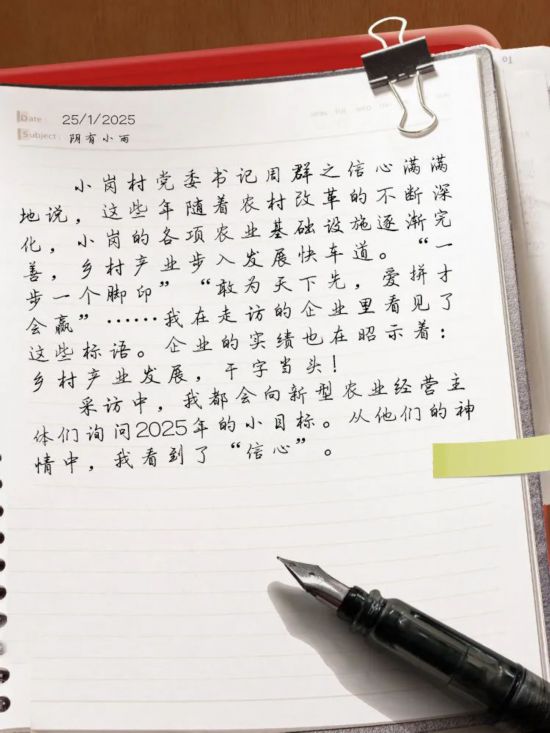 Date: 25/1/2025
Subject: 阴有小雨
小岗村党委书记周群之信心满满
地说，这些年随着农村改革的不断深
化，小岗的各项农业基础设施逐渐完
善，乡村产业步入发展快车道。“一
步一个脚印”“敢为天下先，爱拼才
会赢”……我在走访的企业里看见了
这些标语。企业的实绩也在昭示着：
乡村产业发展，干字当头！
采访中，我都会向新型农业经营主
体们询问2025年的小目标。从他们的神
情中，我看到了“信心”。